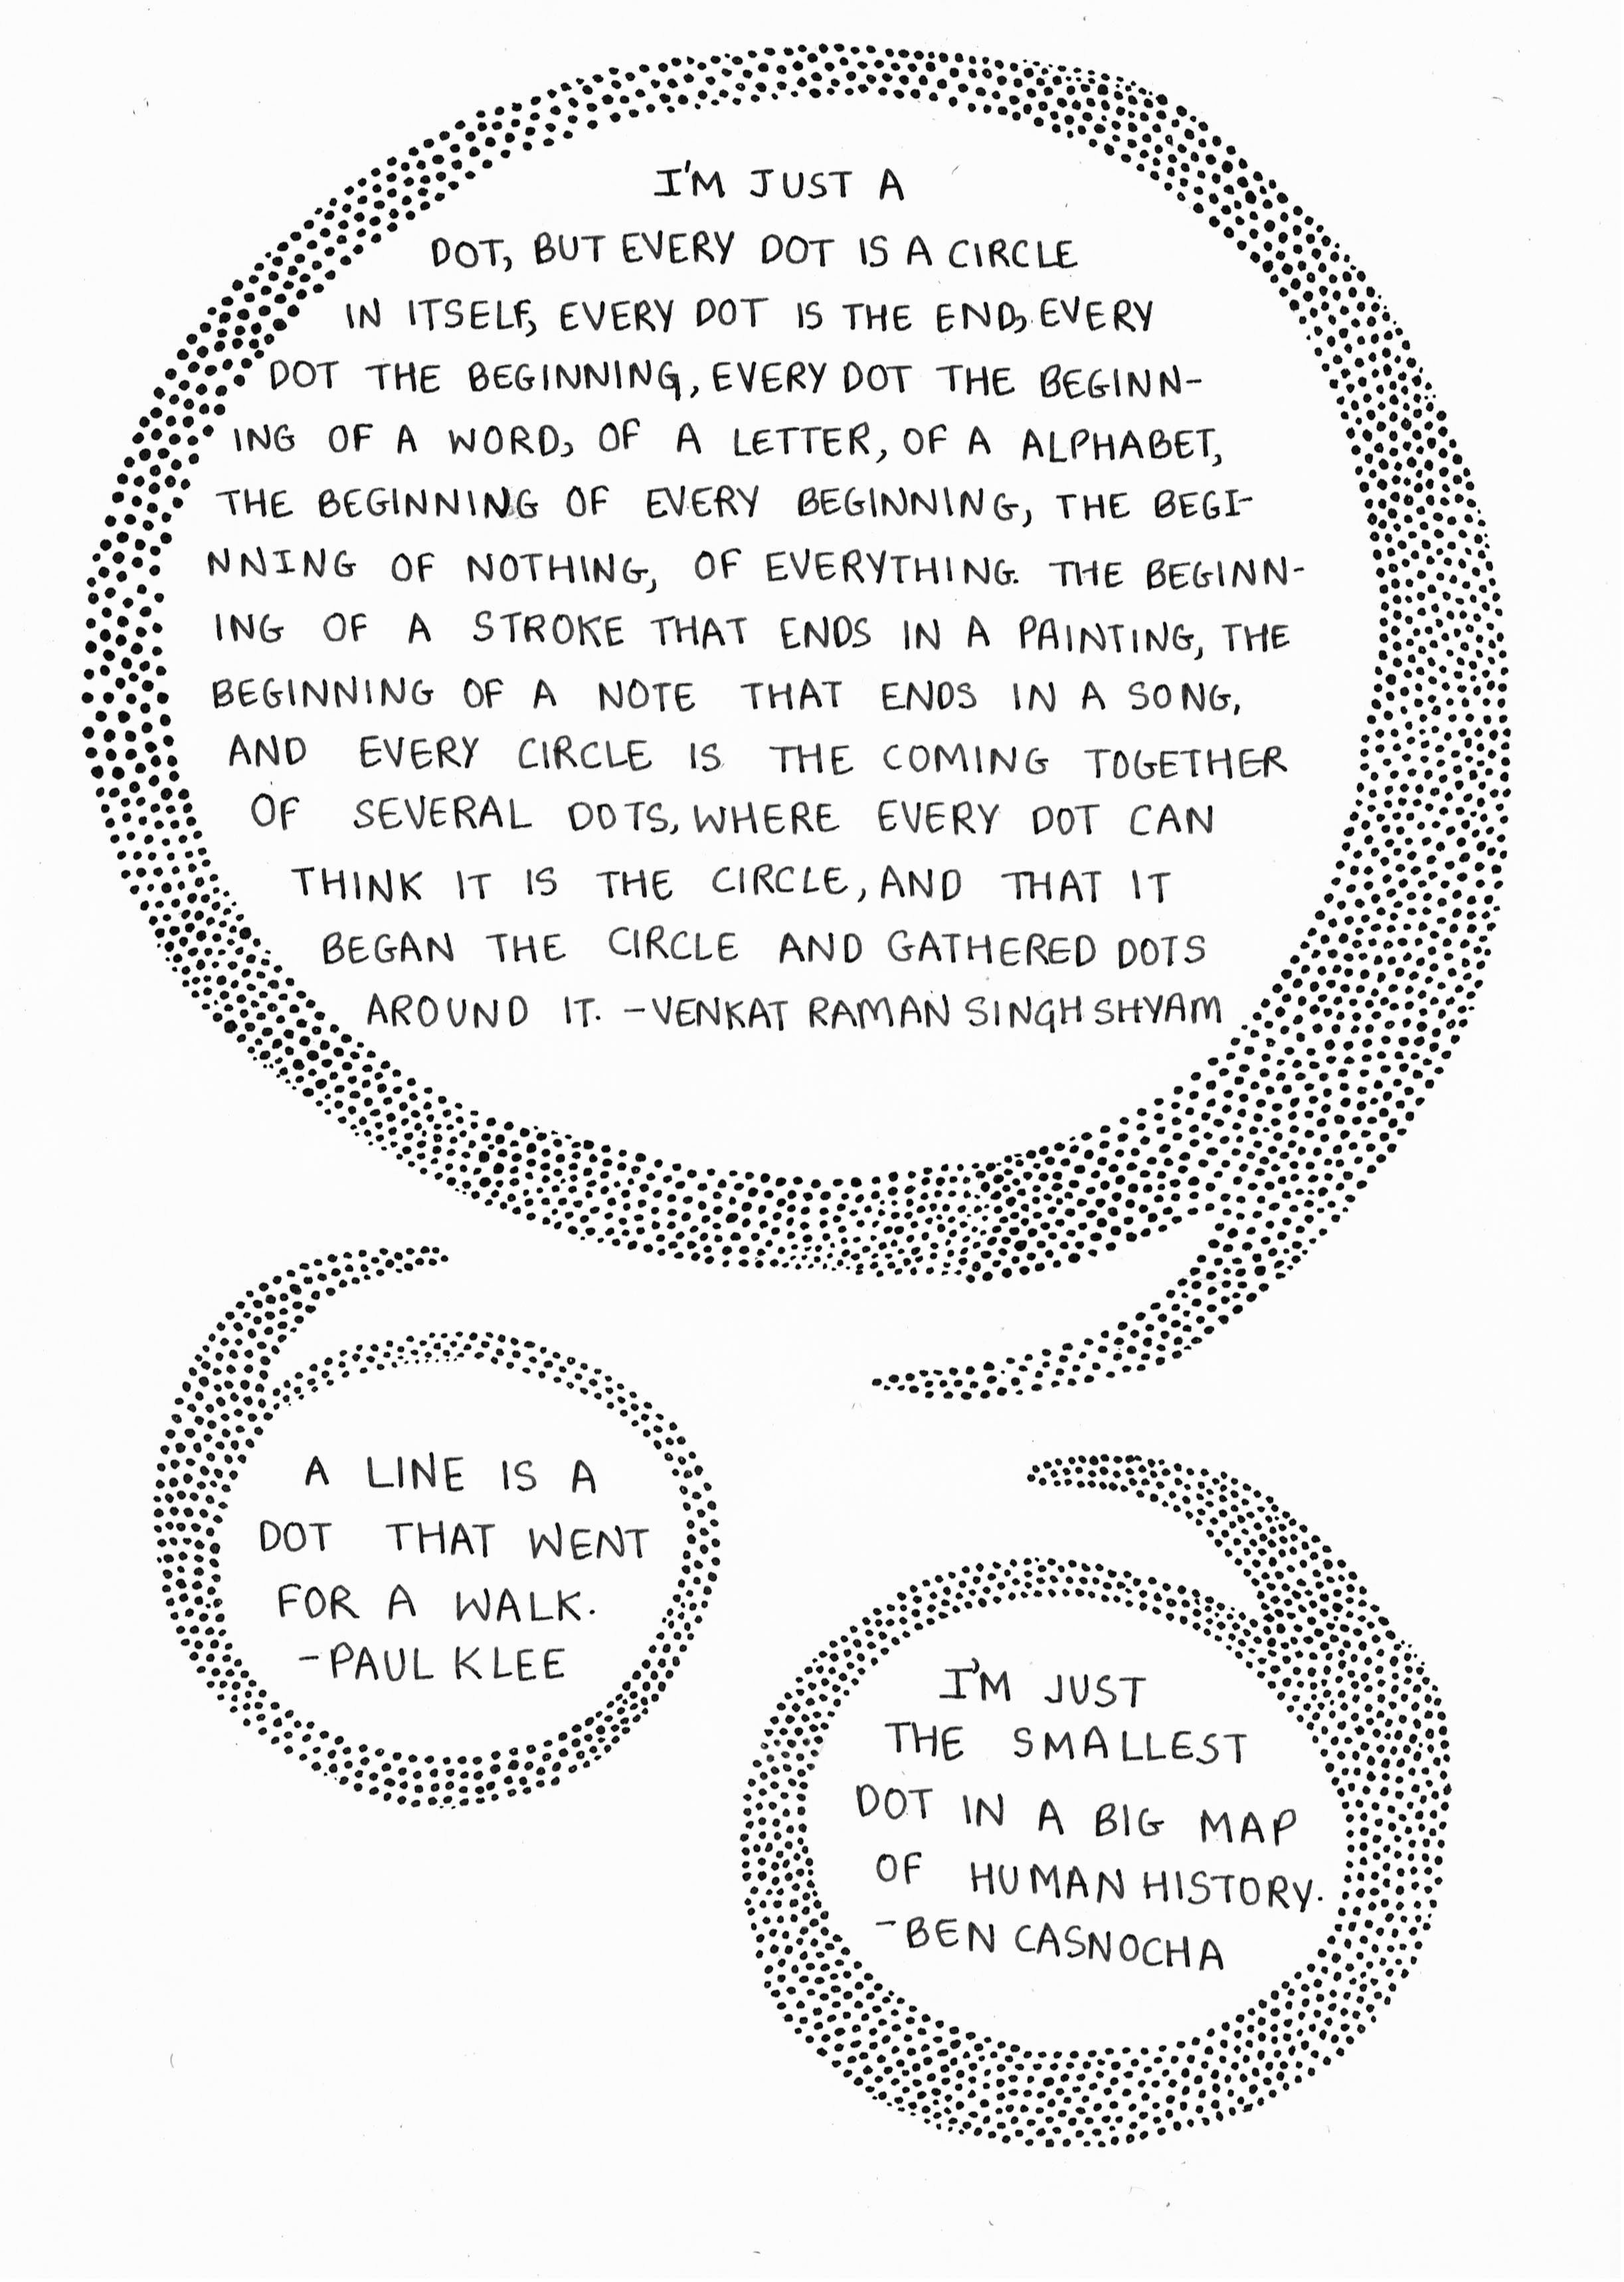 I'M JUST A
DOT, BUT EVERY DOT IS A CIRCLE
IN ITSELF, EVERY DOT IS THE END, EVERY
DOT THE BEGINNING, EVERY DOT THE BEGINN-
ING OF A WORD, OF A LETTER, OF A ALPHABET,
THE BEGINNING OF EVERY BEGINNING, THE BEGI-
NNING OF NOTHING, OF EVERYTHING. THE BEGINN-
ING OF A STROKE THAT ENDS IN A PAINTING, THE
BEGINNING OF A NOTE THAT ENDS IN A SONG,
AND EVERY CIRCLE IS THE COMING TOGETHER
OF SEVERAL DOTS, WHERE EVERY DOT CAN
THINK IT IS THE CIRCLE, AND THAT IT
BEGAN THE CIRCLE AND GATHERED DOTS
AROUND IT. -VENKAT RAMAN SINGH SHYAM
A LINE IS A
DOT THAT WENT
FOR A WALK.
-PAUL KLEE
I'M JUST
THE SMALLEST
DOT IN A BIG MAP
OF HUMAN HISTORY.
-BEN CASNOCHA